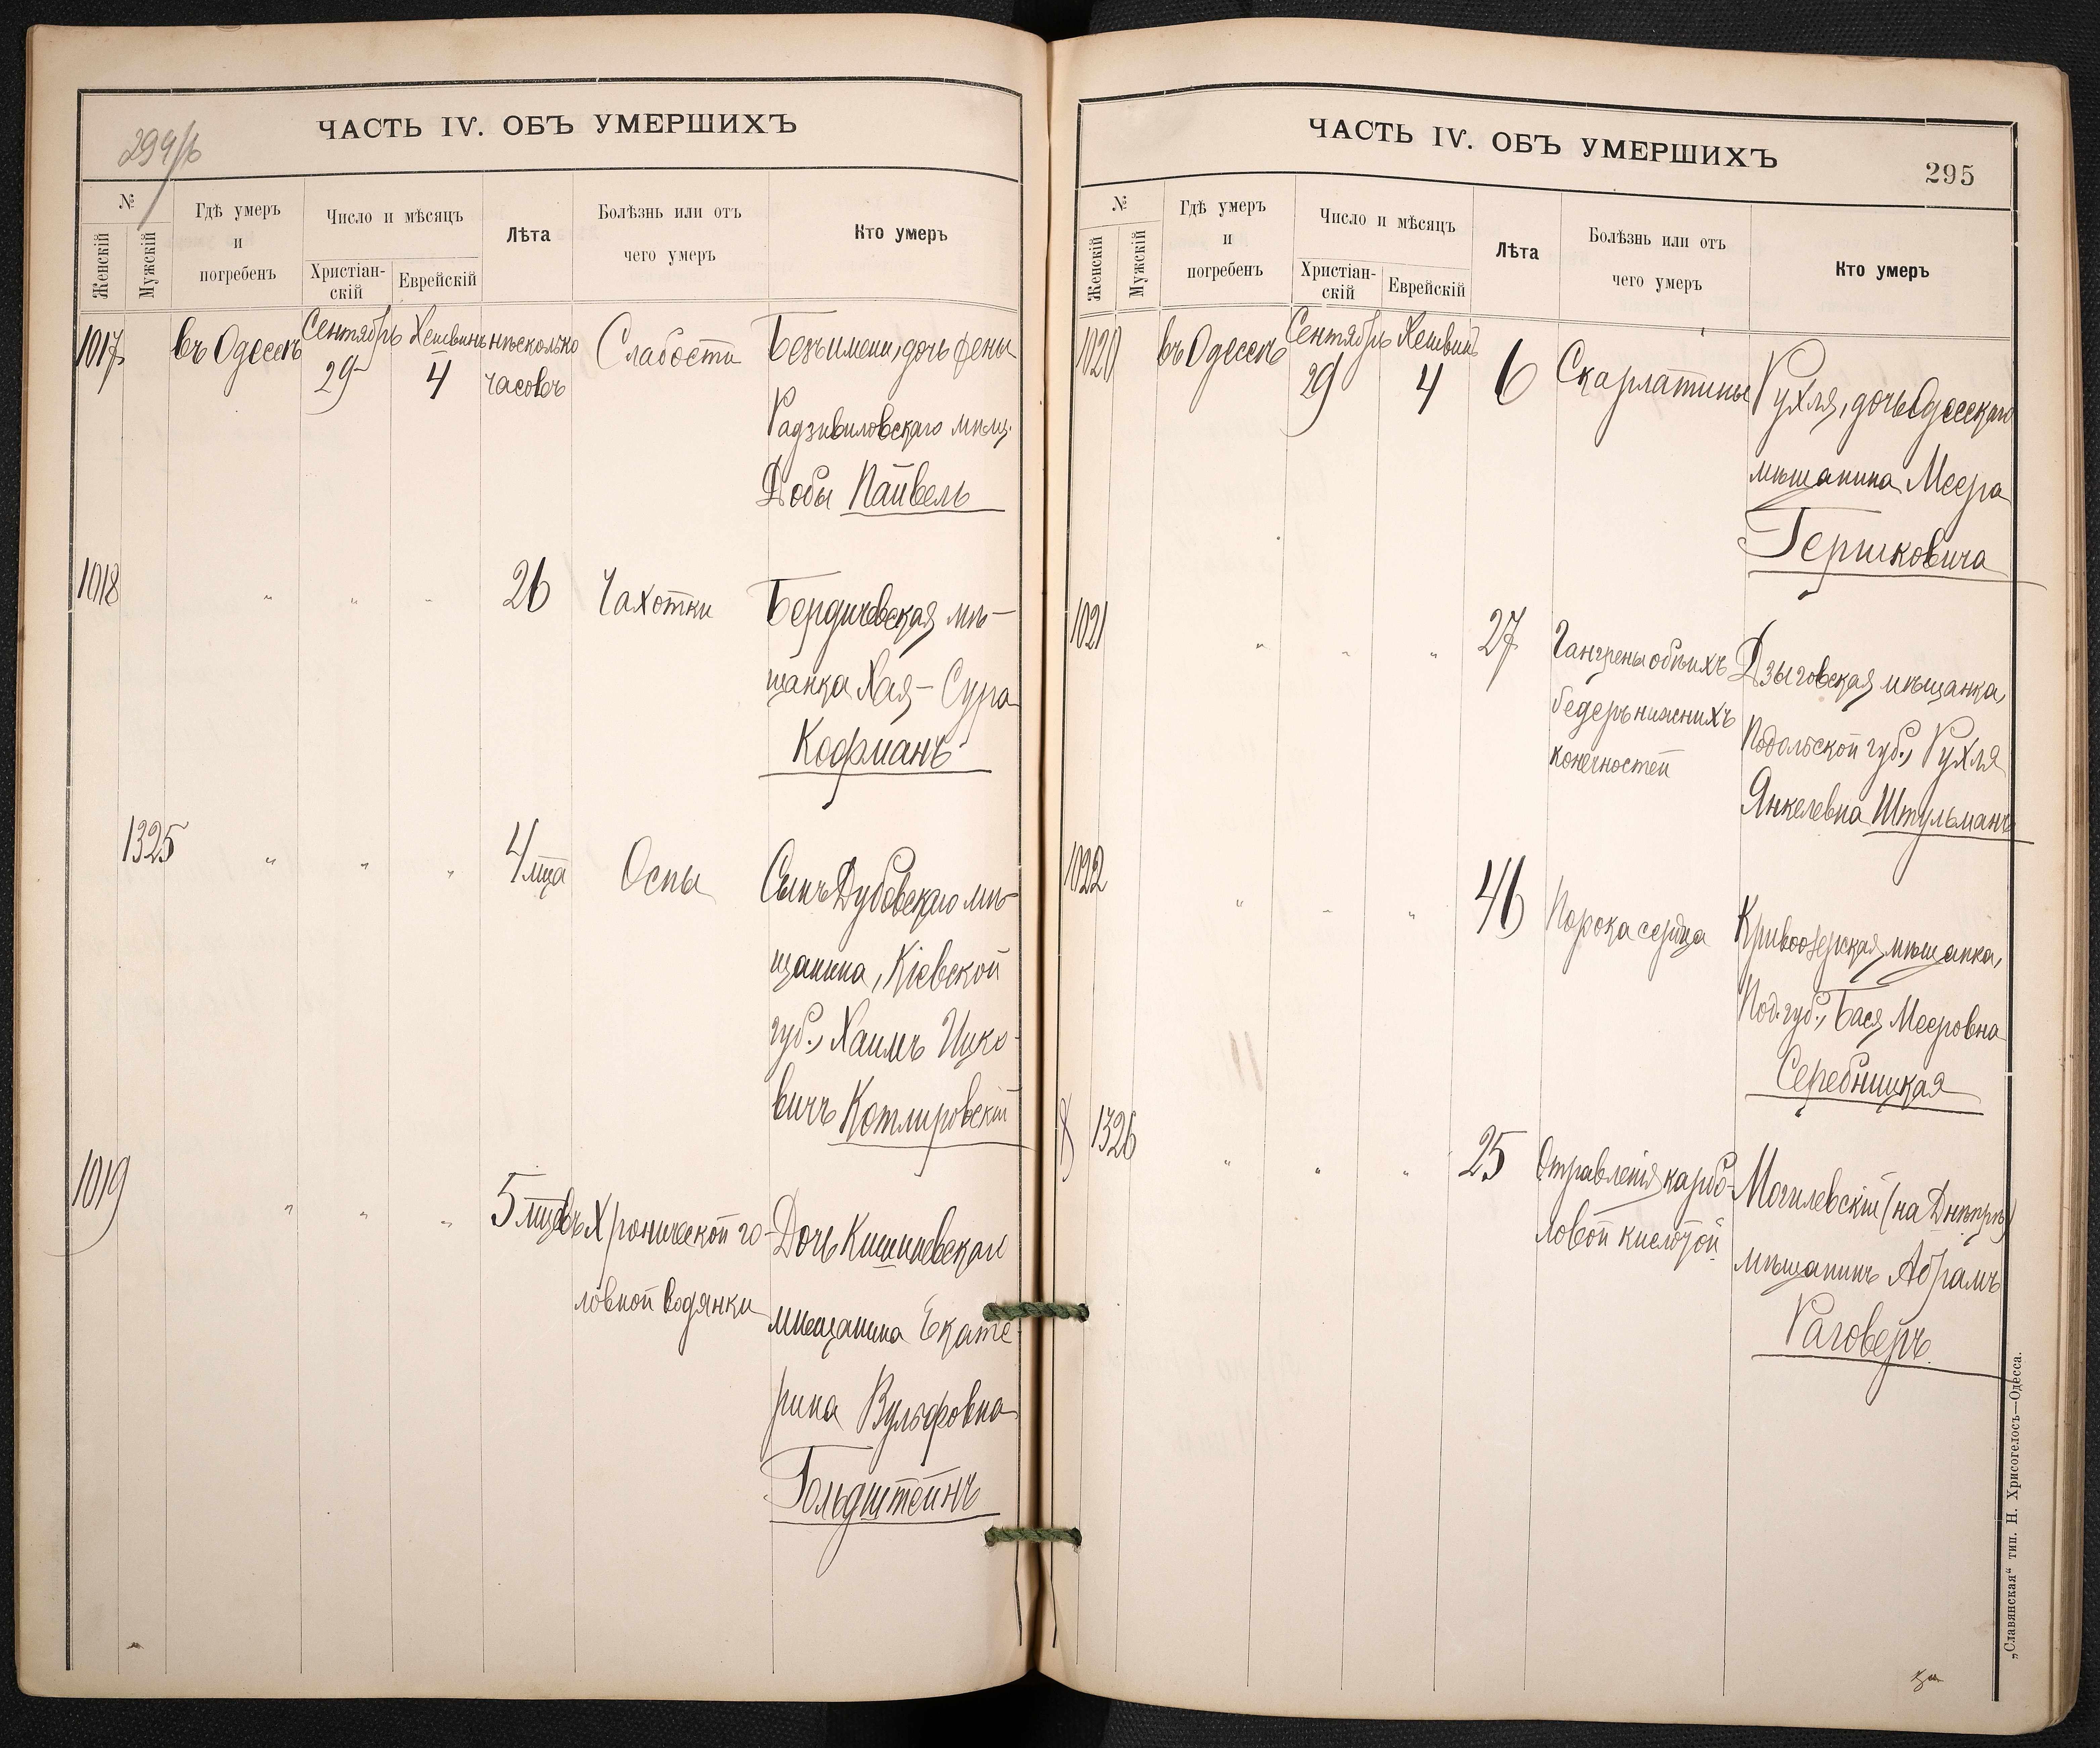 299/б
ЧАСТЬ IV. ОБЪ УМЕРШИХЪ
№
Женскій
Мужскій
Гдѣ умеръ
и
погребенъ
Число и мѣсяцъ
Христіан-
скій
Еврейскій
Лѣта
Болѣзнь или отъ
чего умеръ
Кто умеръ
1017 въ Одессѣ Сентябрь 29 Хешвинъ 4 нѣсколько часовъ Слабости Безъ имени, дочь жены
Радзивиловскаго мѣщ.
Добы Пайвель
1018 " " " 26 Чахотки Бердичевская мѣ-
щанка Хая-Сура
Кофманъ
1325 " " " 4 мца Оспы Сынъ Дубовскаго мѣ-
щанина, Кіевской
губ., Хаимъ Ицко-
вичъ Котляровскій
1019 " " " 5 мцевъ Хронической го- Дочь Кишиневскаго
ловной водянки мѣщанина Екате-
рина Вульфовна
Гольдштейнъ
ЧАСТЬ IV. ОБЪ УМЕРШИХЪ
295
№
Женскій
Мужскій
Гдѣ умеръ
и
погребенъ
Число и мѣсяцъ
Христіан-
скій
Еврейскій
Лѣта
Болѣзнь или отъ
чего умеръ
Кто умеръ
1020 въ Одессѣ Сентябрь 29 Хешвинъ 4 6 Скарлатины Рухля, дочь Одесскаго
мѣщанина Меера
Гершковича
1021 " " " 27 Гангрены обѣихъ Дзыговская мѣщанка,
бедеръ нижнихъ Подольской губ., Рухля
конечностей Янкелевна Штульманъ
1022 " " " 46 Порока сердца Кривоозерская мѣщанка,
Под. губ., Бася Мееровна
Серебницкая
1326 " " " 25 Отравленія карбо- Могилевскій (на Днѣпрѣ)
ловой кислотой мѣщанинъ Абрамъ
Раговеръ
„Славянская“ тип. Н. Хрисогелосъ—Одесса.